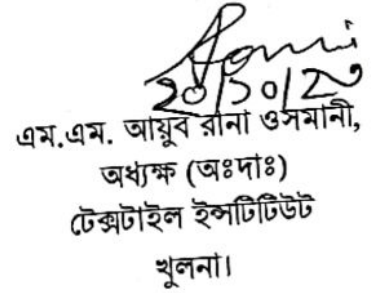 ২০/১০/২৩
এম.এম. আয়ুব রানা ওসমানী,
অধ্যক্ষ (অঃদাঃ)
টেক্সটাইল ইন্সটিটিউট
খুলনা।